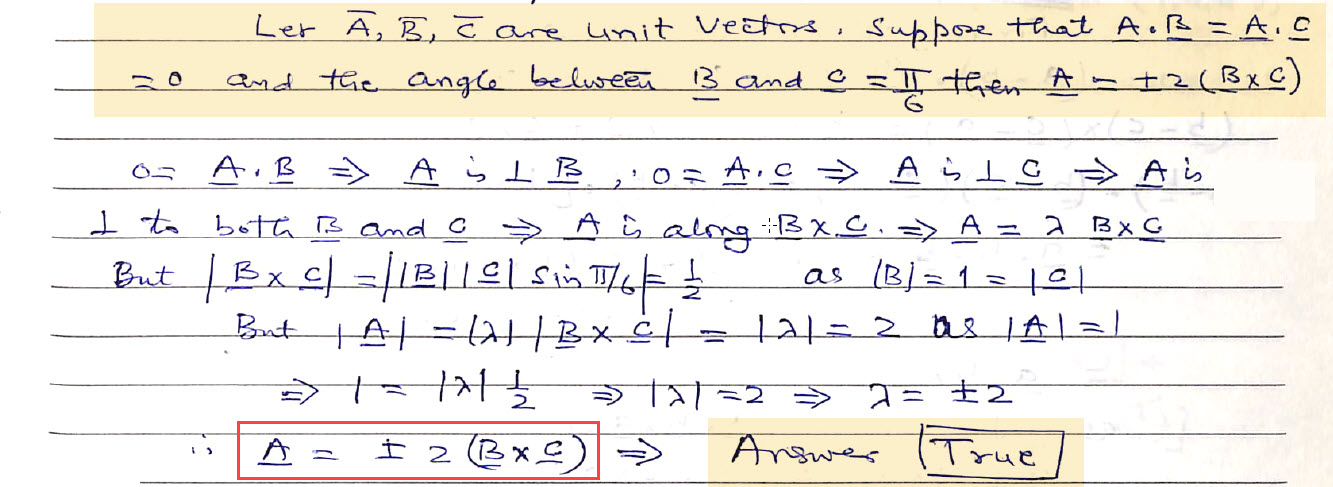 Let A̅, B̅, C̅ are unit vectors. Suppose that A̲.B̲ = A̲.C̲
=0 and the angle between B̲ and C̲ = π/6 then A̲ = ±2(B̲×C̲)
0= A̲.B̲ ⇒ A̲ is ⊥ B̲, ∵ 0= A̲.C̲ ⇒ A̲ is ⊥ C̲ ⇒ A̲ is
⊥ to both B̲ and C̲ ⇒ A̲ is along B̲×C̲. ⇒ A̲ = λ B̲×C̲
But |B̲×C̲| = ||B̲||C̲| sin π/6| = 1/2 as |B| = 1 = |C̲|
But |A̲| = |λ| |B̲×C̲| = |λ| = 2 as |A̲| = 1
⇒ 1 = |λ| 1/2 ⇒ |λ| = 2 ⇒ λ = ±2
∴ A̲ = ±2(B̲×C̲) ⇒ Answer (True